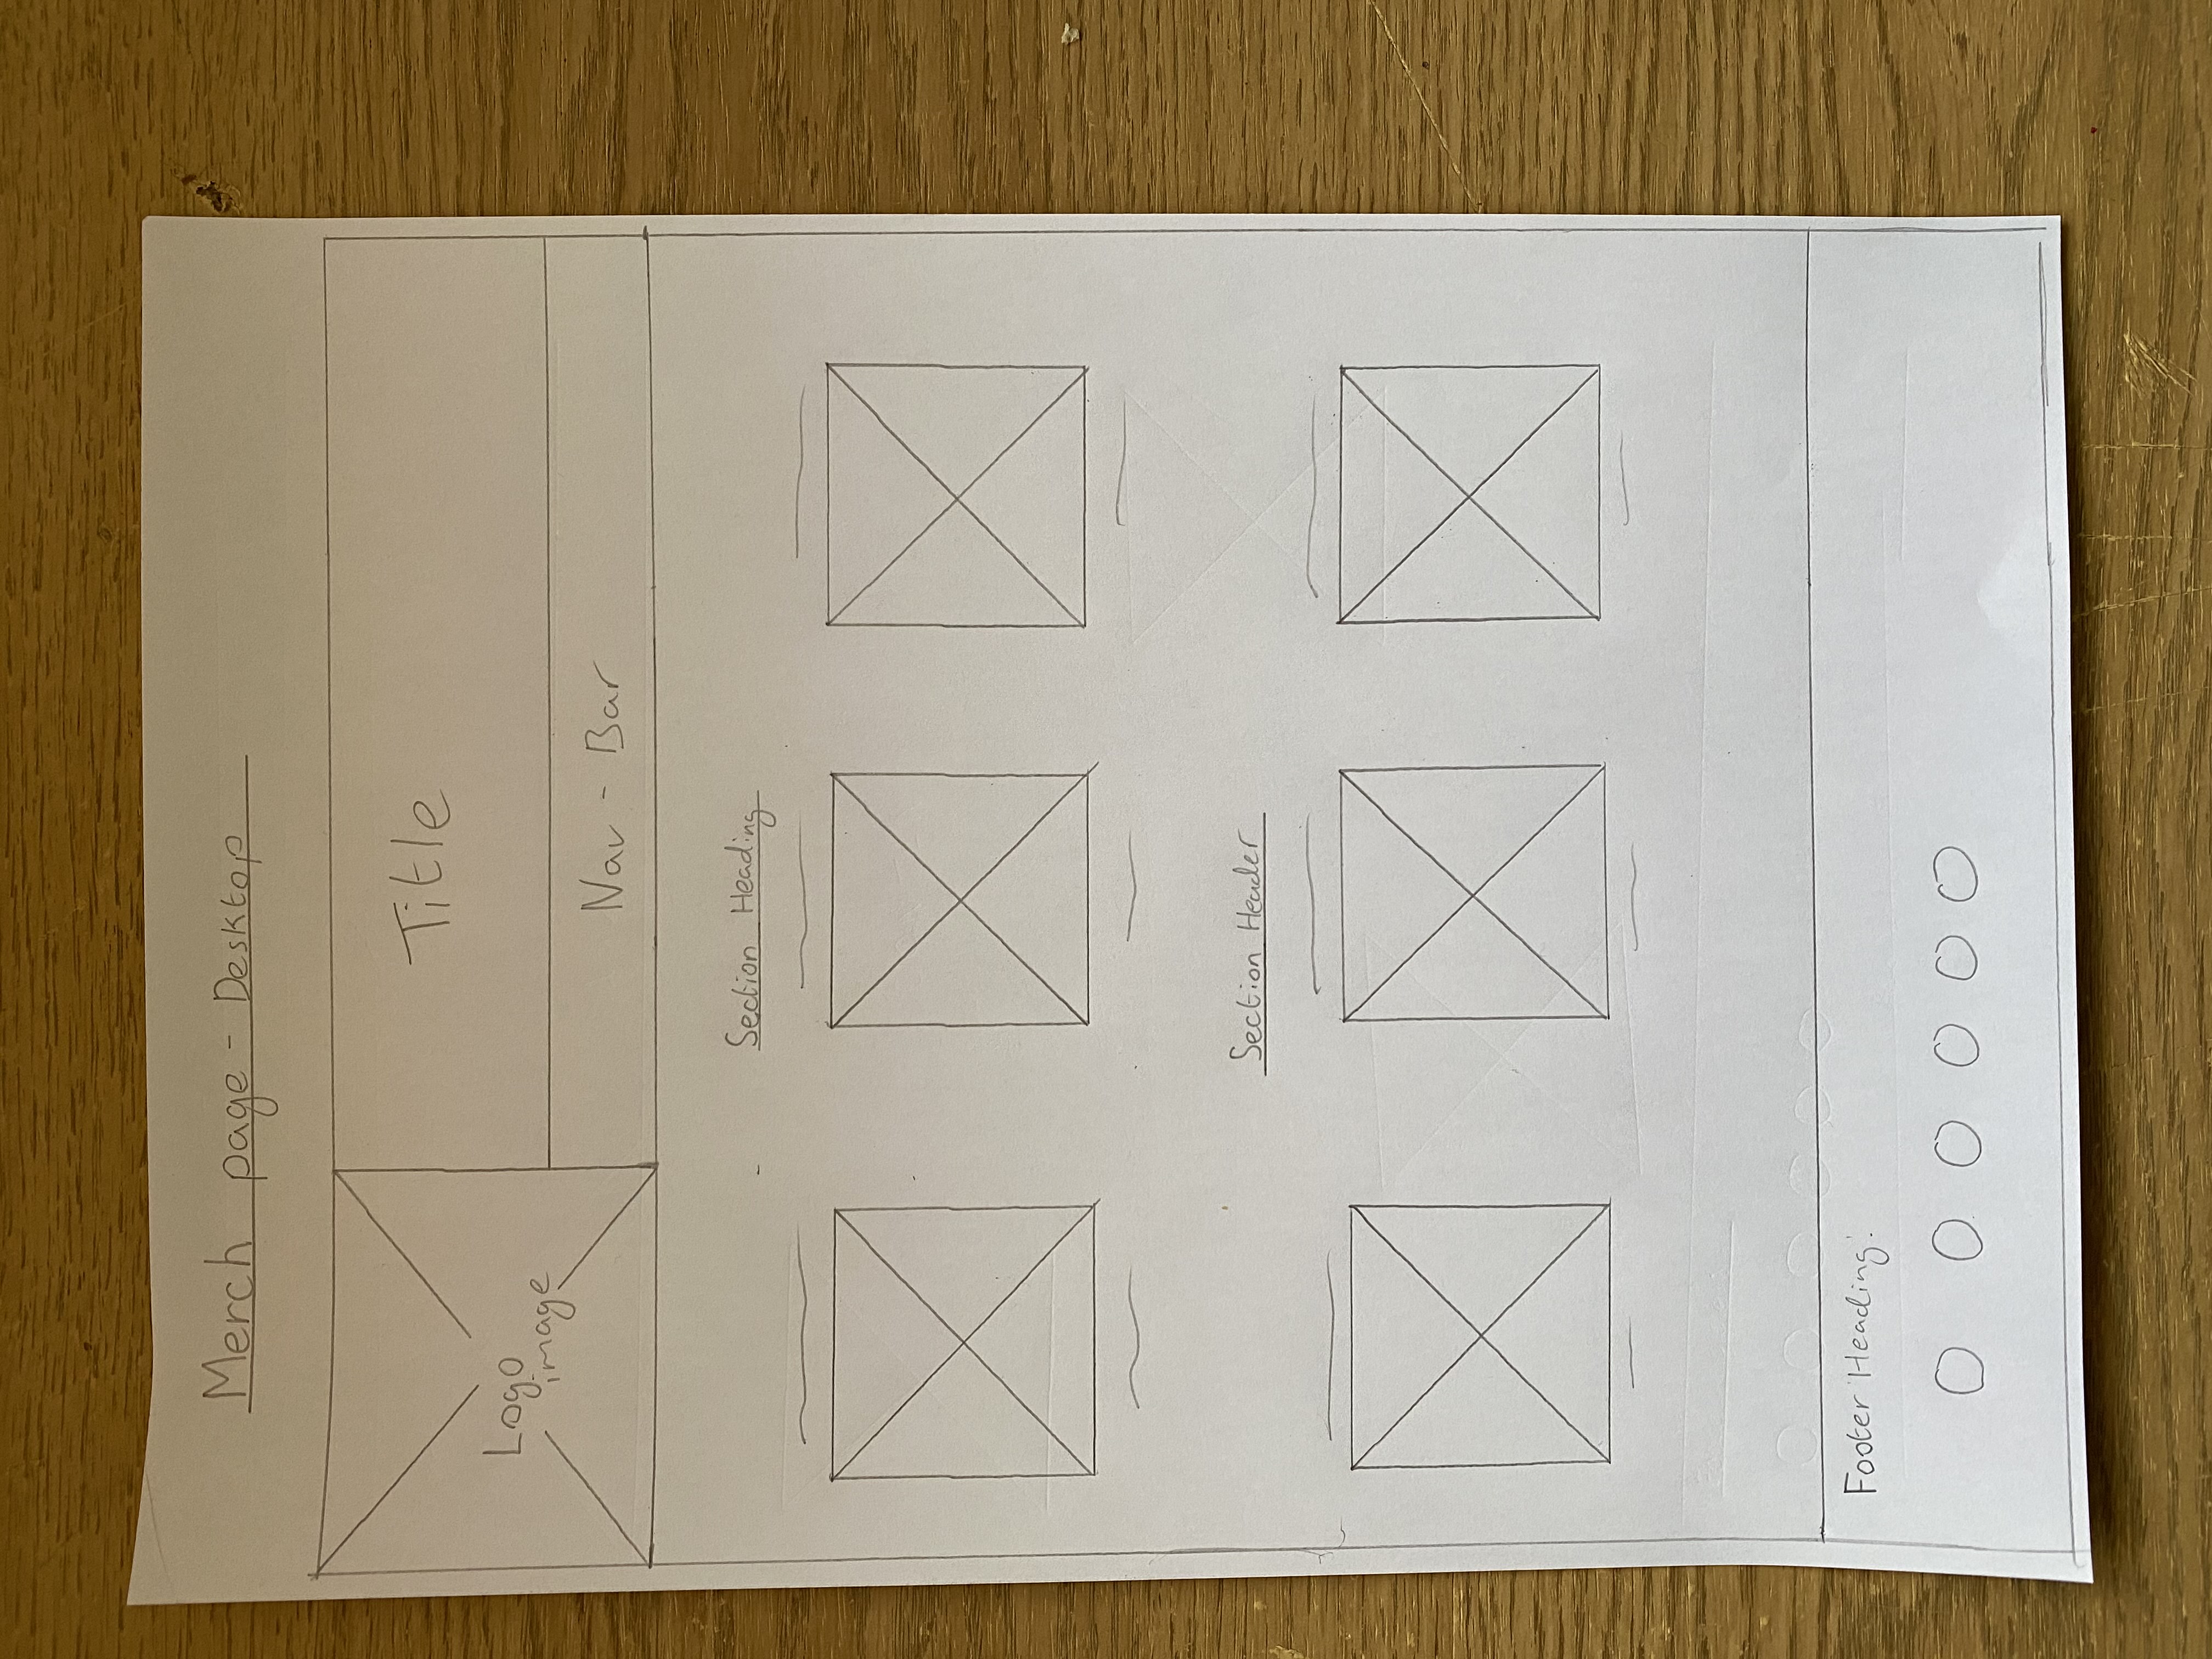 Merch page - Desktop
Title
Logo
image
Nav - Bar
Section Heading
Section Header
Footer Heading: